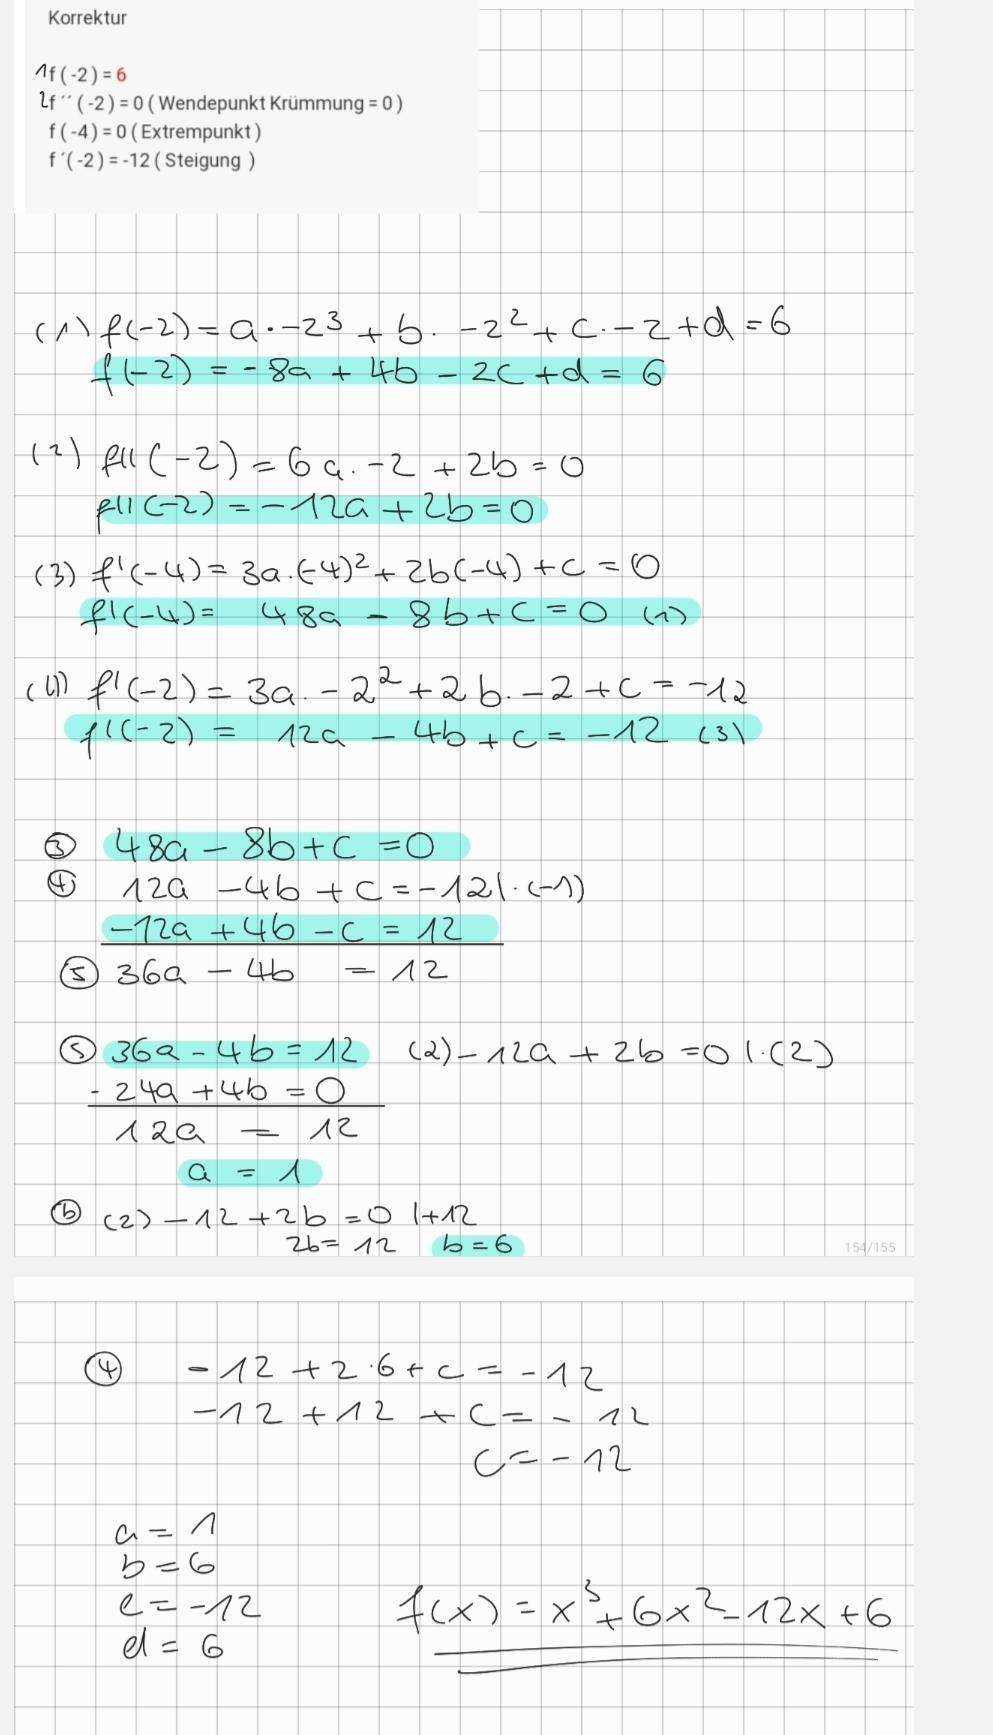 Korrektur
1f(-2) = 6
2f´´(-2) = 0 ( Wendepunkt Krümmung = 0 )
f(-4) = 0 ( Extrempunkt )
f´(-2) = -12 ( Steigung )
(1) f(-2) = a·-2³ + b·-2² + c·-2 + d = 6
f(-2) = -8a + 4b - 2c + d = 6
(2) f''(-2) = 6a·-2 + 2b = 0
f''(-2) = -12a + 2b = 0
(3) f'(-4) = 3a·(-4)² + 2b(-4) + c = 0
f'(-4) = 48a - 8b + c = 0 (1)
(4) f'(-2) = 3a·-2² + 2b·-2 + c = -12
f'(-2) = 12a - 4b + c = -12 (3)
③ 48a - 8b + c = 0
④ 12a - 4b + c = -12 |·(-1)
-12a + 4b - c = 12
⑤ 36a - 4b = 12
⑤ 36a - 4b = 12 (2) -12a + 2b = 0 |·(2)
-24a + 4b = 0
12a = 12
a = 1
ⓑ (2) -12 + 2b = 0 |+12
2b = 12 b = 6
154/155
④ -12 + 2·6 + c = -12
-12 + 12 + c = -12
c = -12
a = 1
b = 6
c = -12
d = 6
f(x) = x³ + 6x² - 12x + 6